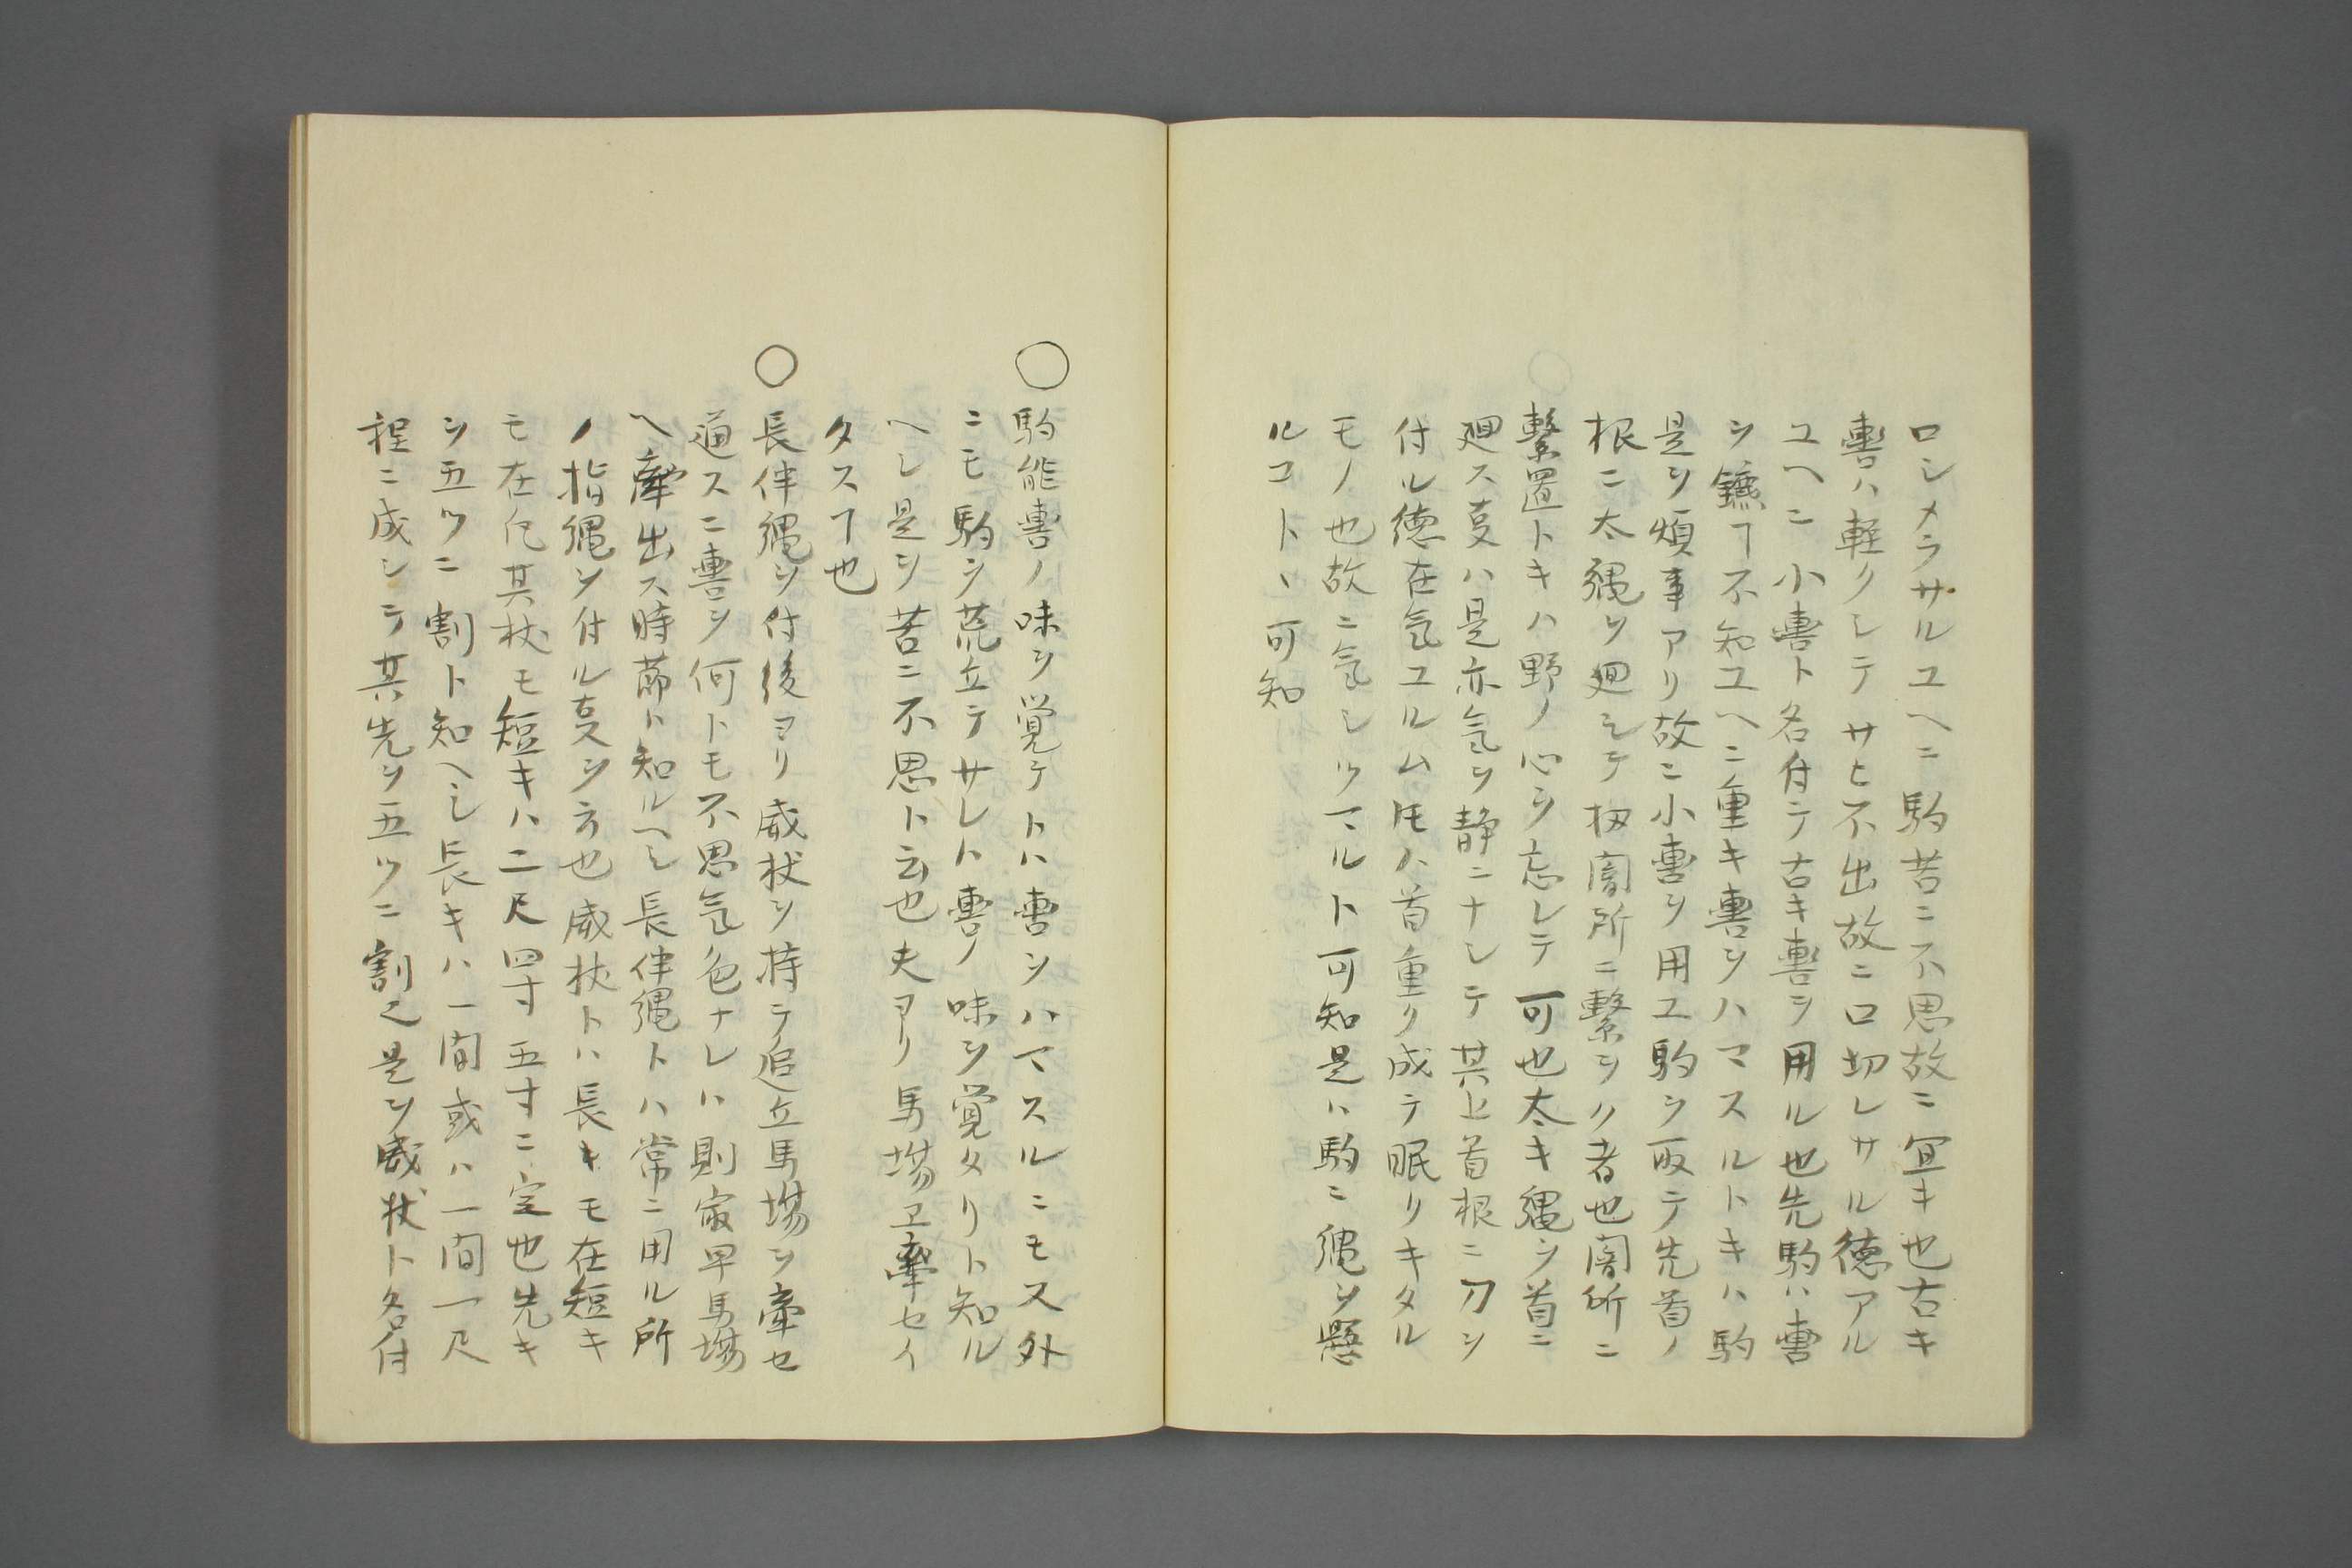 ロシメラサルユヘニ駒苦ニ不思故ニ宜キ也古キ
轡ハ軽クシテサヒ不出故ニ口切レサル徳アル
ユヘニ小轡ト名付テ古キ轡ヲ用ル也先駒ハ轡
ヲ鑣ヿ不知ユヘニ重キ轡ヲハマスルトキハ駒
是ヲ煩事アリ故ニ小轡ヲ用ユ駒ヲ取テ先首ノ
根ニ太縄ヲ廻シテ扨闇所ニ繋ヲク者也闇所ニ
繋置トキハ野ノ心ヲ忘レテ可也太キ縄ヲ首ニ
廻ス叓ハ是亦気ヲ静ニナシテ其上首根ニ刀ヲ
付ル徳在気ユルム𪜈ハ首重ク成テ眠リキタル
モノ也故ニ気シツマルト可知是ハ駒ニ縄ヲ懸
ルコトヽ可知
○駒能轡ノ味ヲ覚テトハ轡ヲハマスルニモス外
ニモ駒ヲ荒立テサレハ轡ノ味ヲ覚タリト知ル
ヘシ是ヲ苦ニ不思ト云也夫ヨリ馬場ヱ牽セイ
タスヿ也
○長伴縄ヲ付後ヨリ威杖ヲ持テ追立馬場ヲ牽セ
通スニ轡ヲ何トモ不思気色ナレハ則最早馬場
ヘ牽出ス時節ト知ルヘシ長伴縄トハ常ニ用ル所
ノ指縄ヲ付ル叓ヲ云也威杖トハ長キモ在短キ
モ在凡其杖モ短キハ二尺四寸五寸ニ定也先キ
ヲ五ツニ割ト知ヘシ長キハ一間或ハ一間一尺
程ニ成シテ其先ヲ五ツニ割之是ヲ威杖ト名付